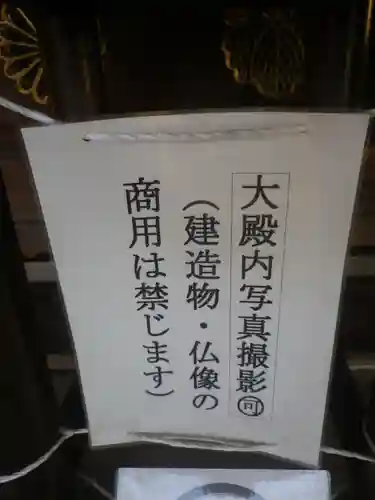 大殿内写真撮影㋕
(建造物・仏像の
商用は禁じます)